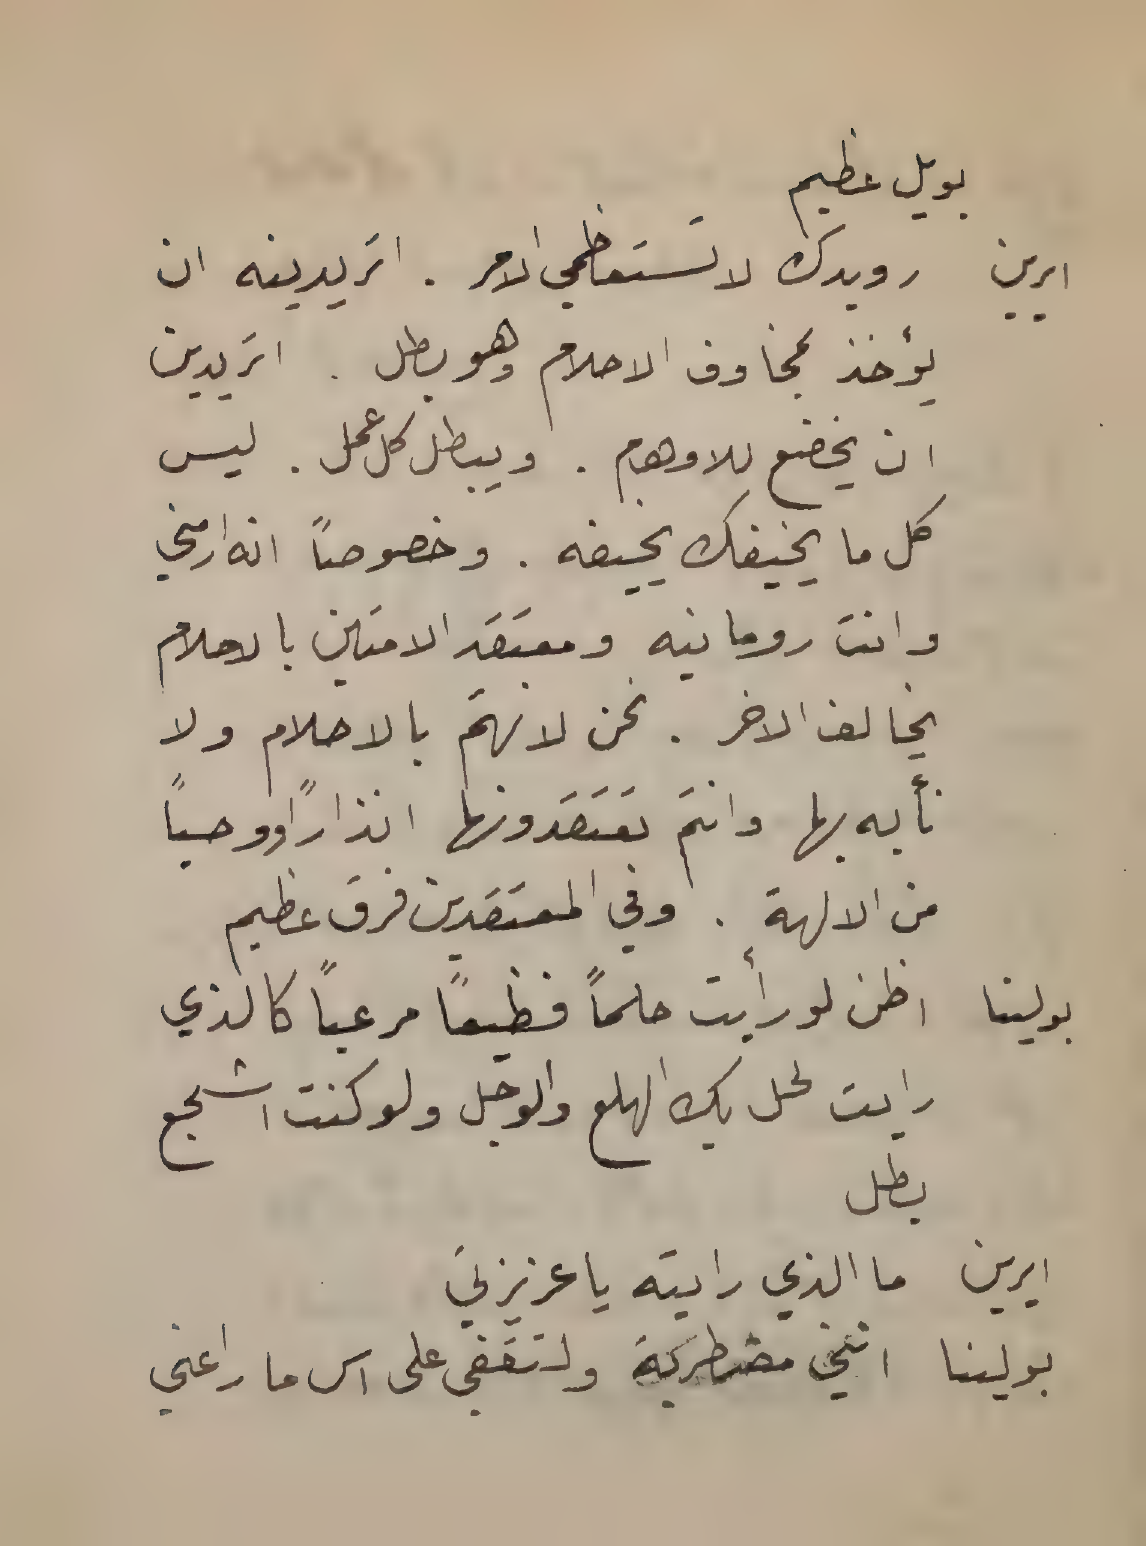 بويل عظيم
ايرين رويدك لا تستعاظمي الامر . اتريدينه ان
يؤخذ بمخاوف الاحلام وهو بطل . اتريدين
ان يخضع للاوهام . ويبطل كل عمل . ليس
كل ما يخيفك يخيفه . وخصوصاً انه ارمني
وانت رومانيه ومعتقد الامتين بالاحلام
يخالف الاخر . نحن لا نهتم بالاحلام ولا
نأبه بها وانتم تعتقدونها انذاراً ووحياً
من الالهة . وفي المعتقدين فرق عظيم
بولينا اظن لو رأيت حلماً فظيعاً مرعباً كالذي
رايت لحل بك الهلع والوجل ولو كنت اشجع
بطل
ايرين ما الذي رايته يا عزيزتي
بولينا انني مضطربة ولتقفي على اس ما راعني